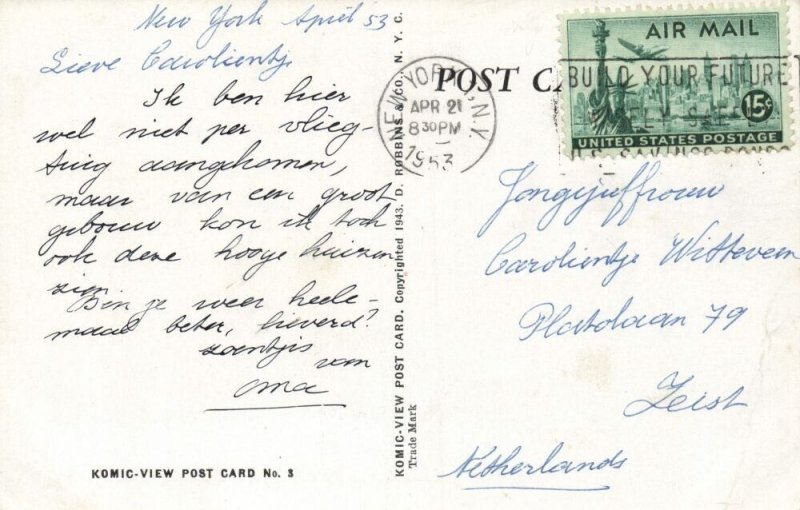 New York April 53
Lieve Carolientje
Ik ben hier
wel niet per vlieg-
tuig aangekomen,
maar van een groot
gebouw kon ik toch
ook deze hooge huizen
zien.
Ben je weer heele-
maal beter, lieverd?
zoentjis
van
Oma
KOMIC-VIEW POST CARD No. 3
KOMIC-VIEW POST CARD. Copyrighted 1943. D. ROBBINS & CO., N. Y. C.
Trade Mark
POST CA
NEW YORK, N.Y.
APR 21
8 30 PM
1953
AIR MAIL
BUILD YOUR FUTURE
15¢
UNITED STATES POSTAGE
Jongejuffrouw
Carolientje Witteveen
Platolaan 79
Zeist
Netherlands